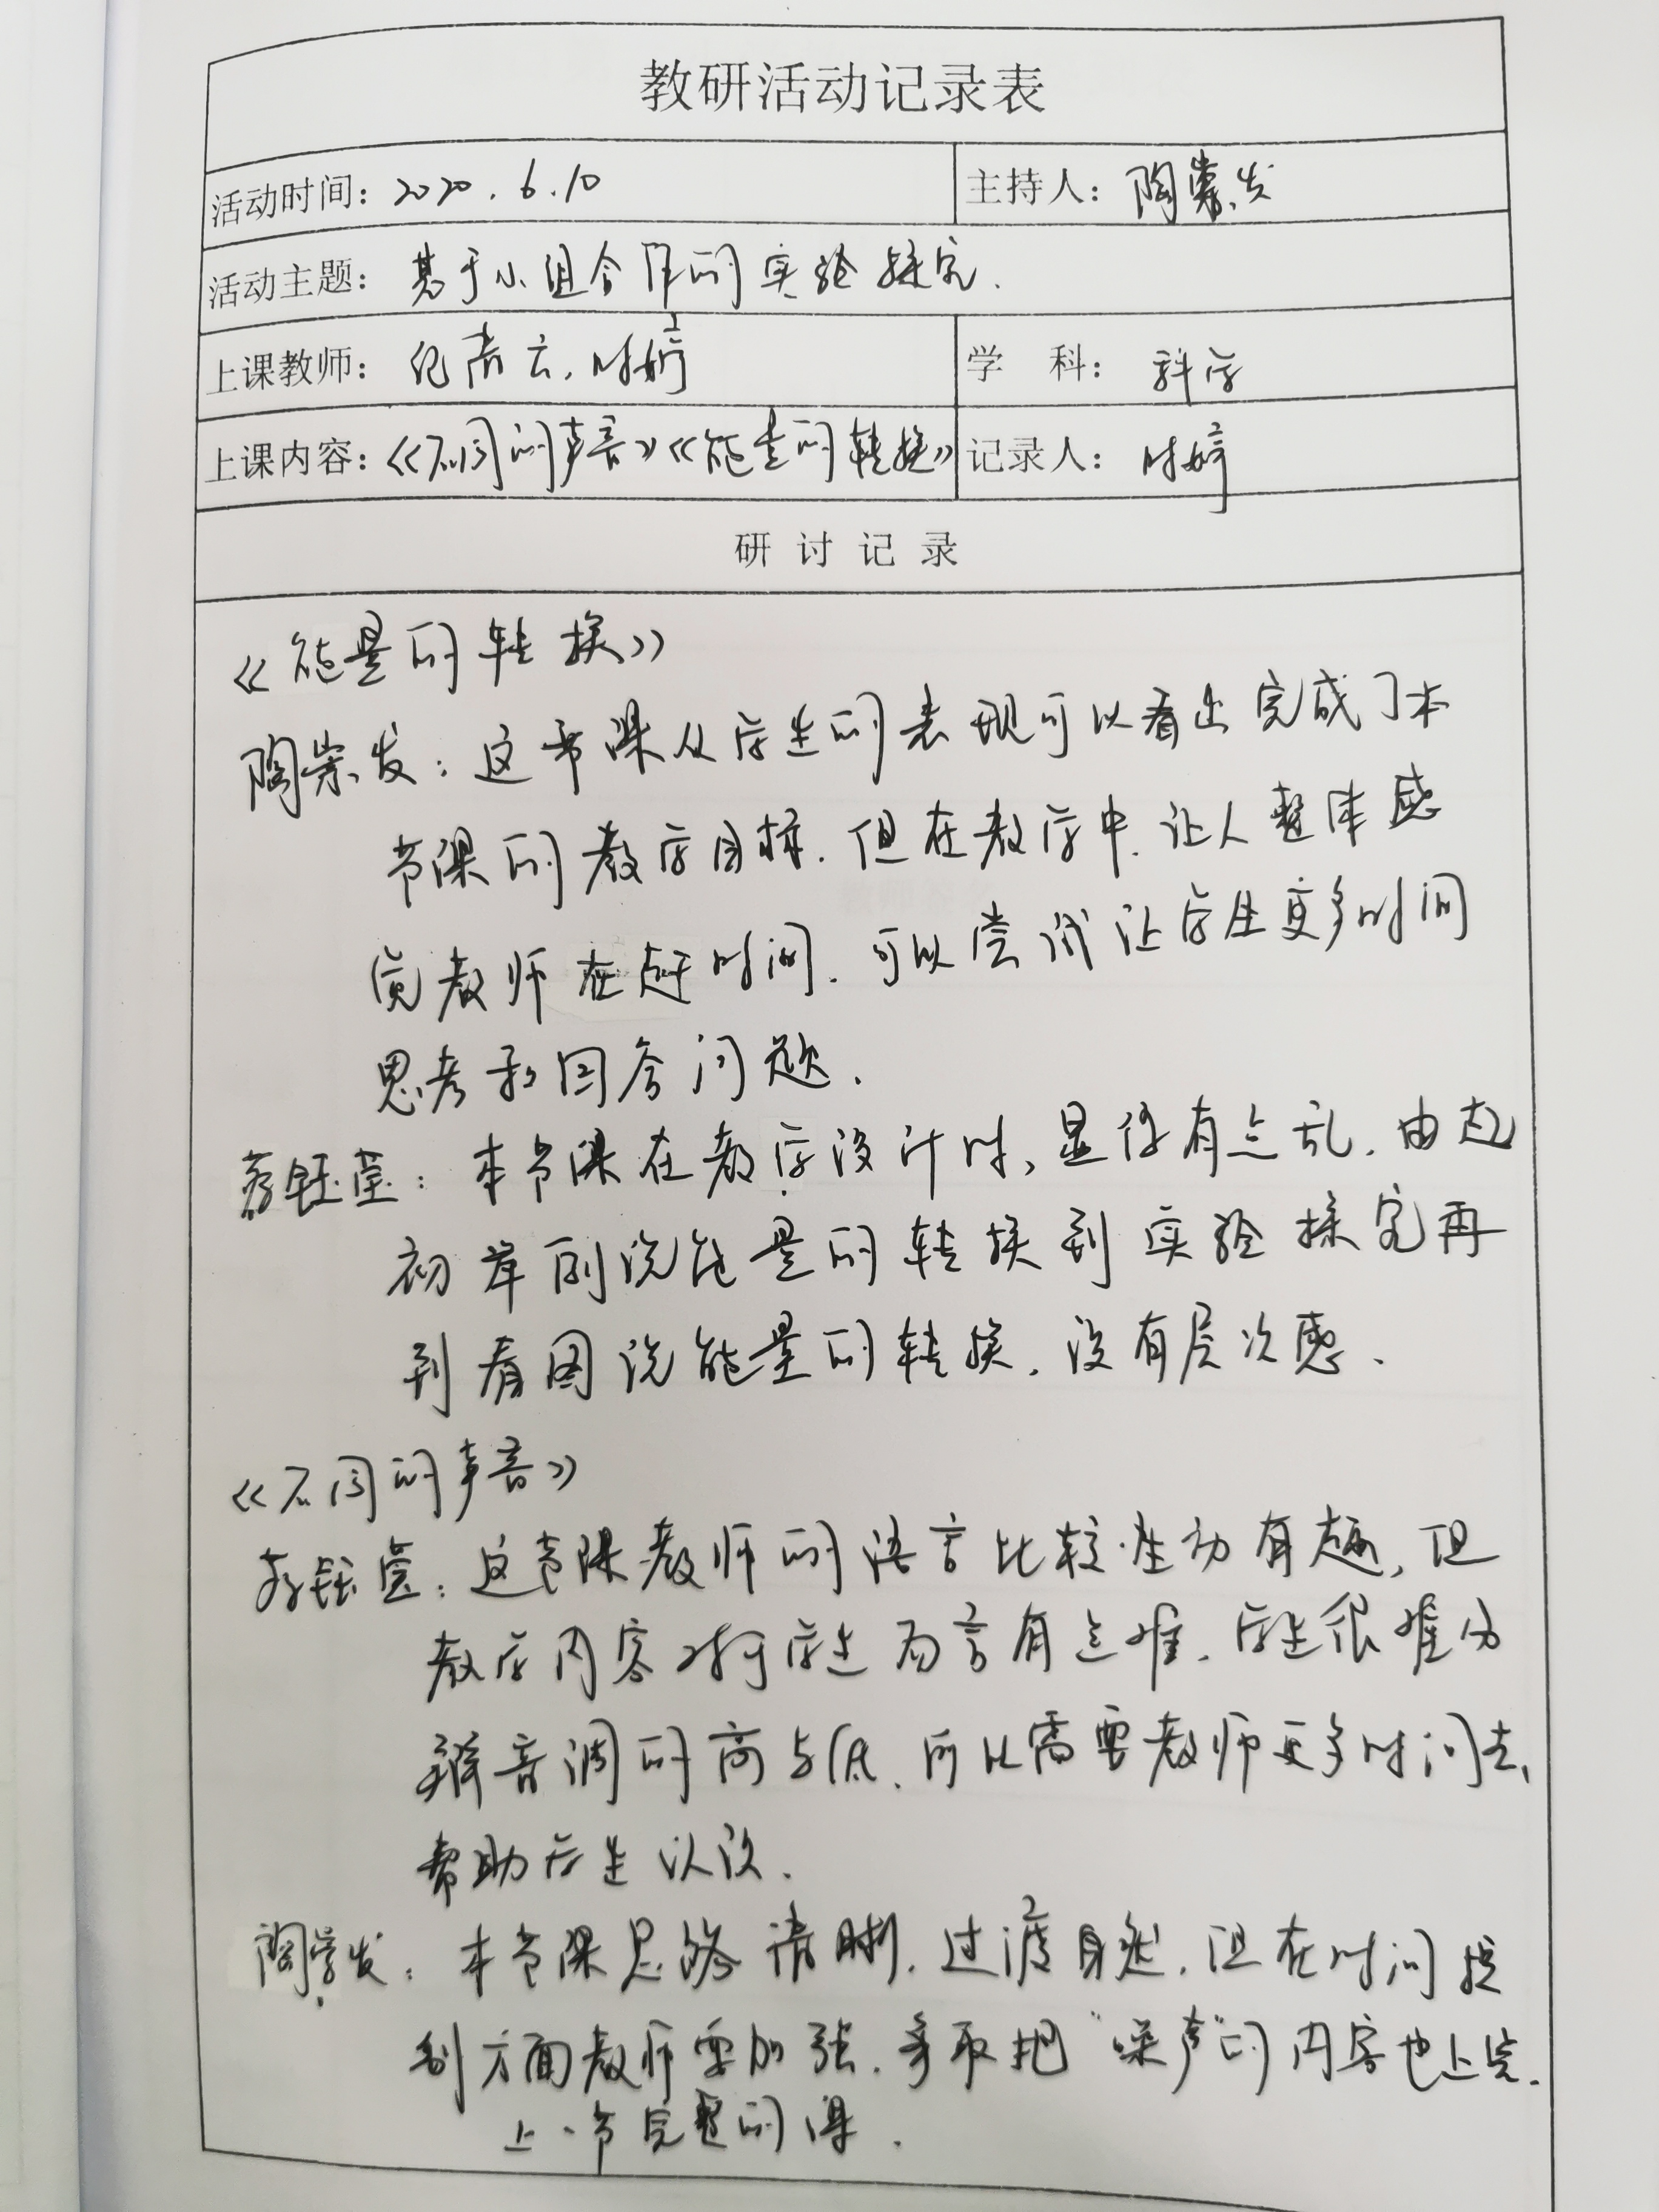 教研活动记录表
活动时间：2020.6.10
主持人：陶崇发
活动主题：基于小组合作的实验探究.
上课教师：纪 云,时婷
学 科：科学
上课内容：《不同的声音》《能量的转换》
记录人：时婷
研讨记录
《能量的转换》
陶崇发：这节课从学生的表现可以看出完成了本
节课的教学目标.但在教学中.让人整体感
觉教师在赶时间.可以尝试让学生更多时间
思考和回答问题.
钰莹：本节课在教学设计时,显得有点乱.由起
初举例说能量的转换到实验探究再
到看图说能量的转换.没有层次感.
《不同的声音》
钰莹：这节课教师的语言比较生动有趣,但
教学内容对于学生而言有点难.学生很难分
辨音调的高与低.所以需要教师更多时间去
帮助学生认识.
陶崇发：本节课思路清晰.过渡自然.但在时间控
制方面教师要加强.争取把“噪声”的内容也上完.
上一节完整的课.